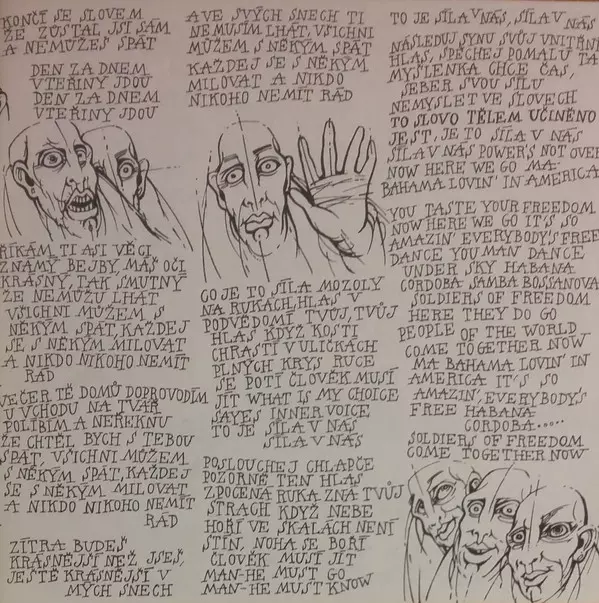 KONČÍ SE SLOVEM
ŽE ZŮSTAL JSI SÁM
A NEMŮŽEŠ SPÁT
DEN ZA DNEM
VTEŘINY JDOU
DEN ZA DNEM
VTEŘINY JDOU
ŘÍKÁM TI ASI VĚCI
ZNÁMÝ BEJBY, MÁŠ OČI
KRÁSNÝ, TAK SMUTNÝ
ŽE NEMŮŽU LHÁT
VŠICHNI MŮŽEM S
NĚKÝM SPÁT, KAŽDEJ
SE S NĚKÝM MILOVAT
A NIKDO NIKOHO NEMÍT
RÁD
VEČER TĚ DOMŮ DOPROVODÍM
U VCHODU NA TVÁŘ
POLÍBÍM A NEŘEKNU
ŽE CHTĚL BYCH S TEBOU
SPÁT, VŠICHNI MŮŽEM
S NĚKÝM SPÁT, KAŽDEJ
SE S NĚKÝM MILOVAT
A NIKDO NIKOHO NEMÍT
RÁD
ZÍTRA BUDEŠ
KRÁSNĚJŠÍ NEŽ JSEŠ,
JEŠTĚ KRÁSNĚJŠÍ V
MÝCH SNECH
AVE SVÝCH SNECH TI
NEMUSÍM LHÁT, VŠICHNI
MŮŽEM S NĚKÝM SPÁT
KAŽDEJ SE S NĚKÝM
MILOVAT A NIKDO
NIKOHO NEMÍT RÁD
CO JE TO SÍLA MOZOLY
NA RUKÁCH, HLAS V
PODVĚDOMÍ TVŮJ, TVŮJ
HLAS KDYŽ KOSTI
CHRASTÍ V ULIČKÁCH
PLNÝCH KRYS RUCE
SE POTÍ ČLOVĚK MUSÍ
JÍT WHAT IS MY CHOICE
SAYES INNER VOICE
TO JE SÍLA V NÁS
SÍLA V NÁS
POSLOUCHEJ CHLAPČE
POZORNĚ TEN HLAS
ZPOCENÁ RUKA ZNÁ TVŮJ
STRACH KDYŽ NEBE
HOŘÍ VE SKALÁCH NENÍ
STÍN, NOHA SE BOŘÍ
ČLOVĚK MUSÍ JÍT
MAN-HE MUST GO
MAN-HE MUST KNOW
TO JE SÍLA V NÁS, SÍLA V NÁS
NÁSLEDUJ SYNU SVŮJ VNITŘNÍ
HLAS, SPĚCHEJ POMALU TA
MYŠLENKA CHCE ČAS,
SEBER SVOU SÍLU
NEMYSLET VE SLOVECH
TO SLOVO TĚLEM UČINĚNO
JEST, JE TO SÍLA V NÁS
SÍLA V NÁS POWER'S NOT OVER
NOW HERE WE GO MA-
BAHAMA LOVIN' IN AMERICA
YOU TASTE YOUR FREEDOM
NOW HERE WE GO IT'S SO
AMAZIN' EVERYBODY'S FREE
DANCE YOU MAN DANCE
UNDER SKY HABANA
CORDOBA SAMBA BOSSANOVA
SOLDIERS OF FREEDOM
HERE THEY DO GO
PEOPLE OF THE WORLD
COME TOGETHER NOW
MA BAHAMA LOVIN' IN
AMERICA IT'S SO
AMAZIN', EVERYBODY'S
FREE HABANA
CORDOBA.....
SOLDIERS OF FREEDOM
COME TOGETHER NOW